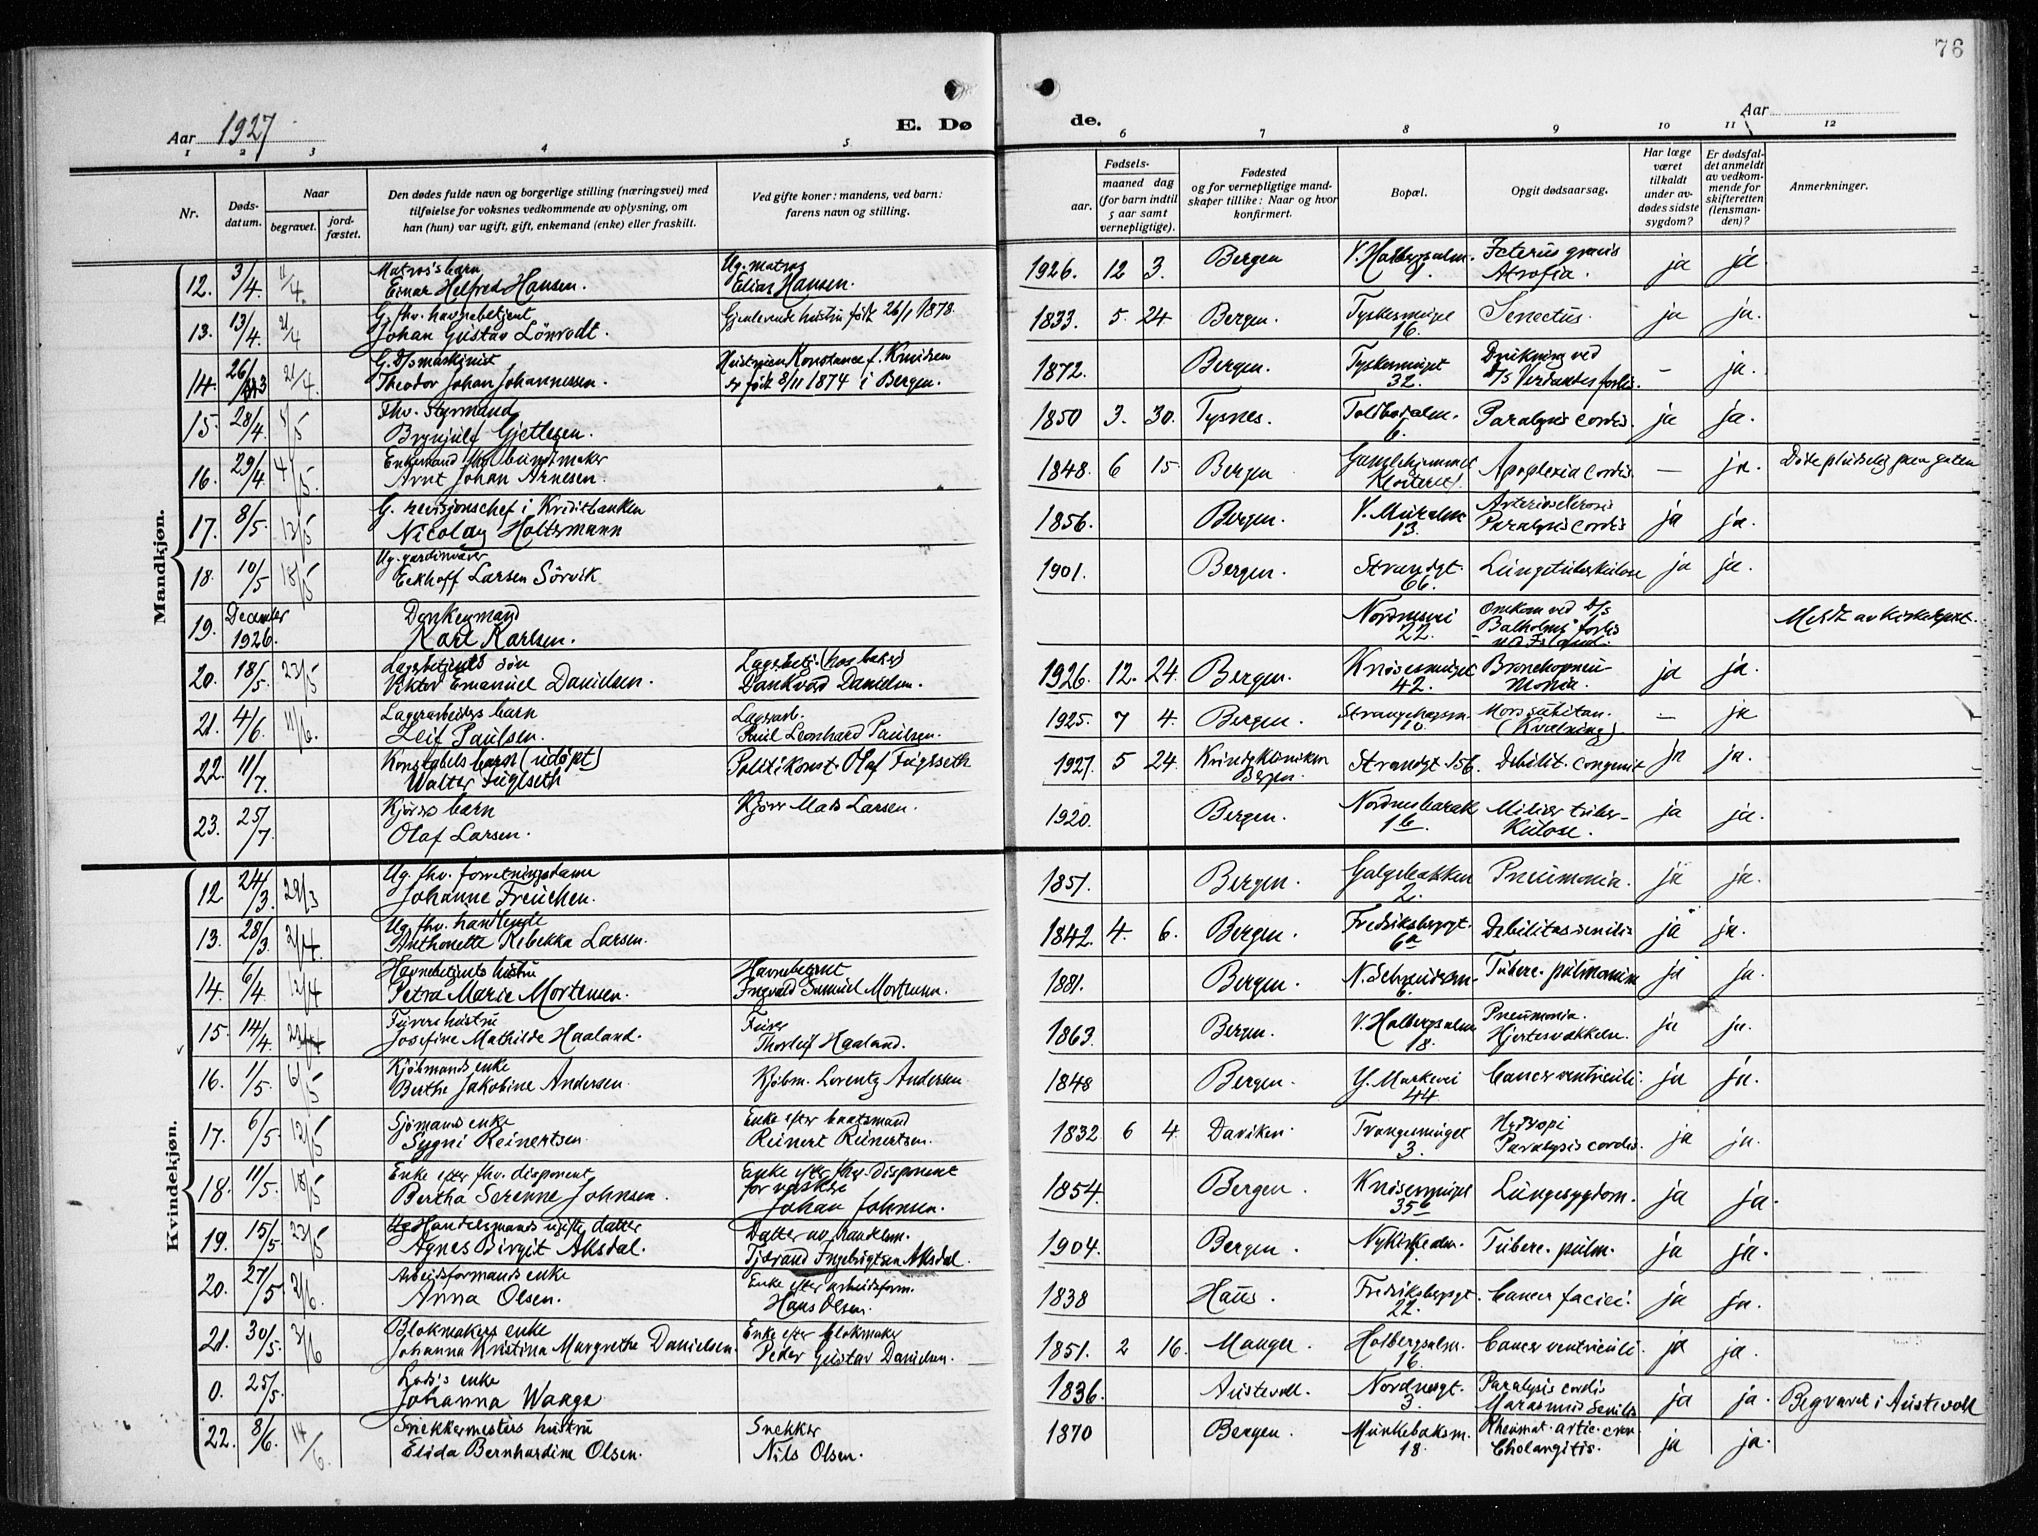 76
Aar 1927
E. Dø
de.
Aar
1 2 3 4 5 6 7 8 9 10 11 12
Nr.
Døds-
datum.
Naar
begravet.
jord-
fæstet.
Den dødes fulde navn og borgerlige stilling (næringsvei) med
tilføielse for voksnes vedkommende av oplysning, om
han (hun) var ugift, gift, enkemand (enke) eller fraskilt.
Ved gifte koner: mandens, ved barn:
farens navn og stilling.
Fødsels-
aar.
maaned dag
(for barn indtil
5 aar samt
vernepligtige).
Fødested
og for vernepligtige mand-
skaper tillike: Naar og hvor
konfirmert.
Bopæl.
Opgit dødsaarsag.
Har læge
været
tilkaldt
under av-
dødes sidste
sygdom?
Er dødsfal-
det anmeldt
av vedkom-
mende for
skifteretten
(lensman-
den)?
Anmerkninger.
Mandkjøn.
12. 3/4. 11/4. Matros's barn Ug. matros 1926. 12 3. Bergen V. Holbergsalm. Icterus gravis ja ja
Einar Helfred Hansen. Elias Hansen. 9. Atrofia.
13. 13/4. 21/4 G. fhv. havnebetjent Gjenlevende hustru født 26/1 1878. 1833. 5. 24. Bergen. Tyskesmuget Senectus. ja ja.
Johan Gustav Lönrodt. 16.
14. 26/3 21/4. G. D/s maskinist Hustruen Konstance f. Knudsen 1872. Bergen. Tyskesmuget Drukning ved — ja.
Theodor Johan Johannessen. er født 8/11 1874 i Bergen. 32. D/S Verdantes forlis.
15. 28/4. 4/5 Fhv. Styrmand 1850 3. 30. Tysnes. Toldbodalm. Paralysis cordis. ja ja.
Brynjulf Gjetlesen. 6.
16. 29/4 4/5. Enkemand fhv. buntmaker 1848. 6 15. Bergen Gamlehjemmet Apoplexia cordis. — ja. Døde pludselig paa gaten
Arnt Johan Arnesen. Klosteret.
17. 8/5. 13/5 G. revisionschef i Kreditbanken 1856. Bergen. V. Muralm. Arteriosclerosis ja ja.
Nicolay Holtermann 13. Paralysis cordis
18. 10/5 18/5 Ug. gardinvæver 1901. Bergen. Strandgt. Lungetuberkulose ja ja.
Eckhoff Larsen Sörvik 66.
19. December Donkeymand Nordnesvei Omkom ved D/s Meldt av kirkeverge.
1926. Karl Karlsen. 22. "Balholms" forlis
20. 18/5. 23/5 Lagerbetjents sön Lagerbetj. (hos baker) 1926. 12. 24. Bergen. Knösesmuget Bronchopneu- ja ja.
Viktor Emanuel Danielsen. Dankvard Danielsen. 42. monia.
21. 4/6. 11/6. Lagerarbeiders barn Lagerarb. 1925. 7 4. Bergen. Strangehagsm. Mors subitan. — ja
Leif Paulsen. Paul Leonhard Paulsen. 10. (Kvælning).
22. 11/7. Konstabels barn (udöpt) Politikonst. Olaf Fuglseth 1927. 5 24. Kvindeklinikken Strandgt. 156. Debilit. congenit. ja ja.
Walter Fuglseth Bergen.
23. 25/7. Kjørers barn Kjører Mads Larsen. 1920. Bergen. Nordnesbarak Miliær tuber- ja ja.
Olaf Larsen. 16. kulose.
Kvindekjøn.
12. 24/3. 29/3 Ug. fhv. forretningsdame 1851. Bergen. Galgebakken Pneumonia. ja ja.
Johanne Freuchen. 2.
13. 28/3. 2/4. Ug. fhv. handlende 1842. 4. 6. Bergen. Fredriksbergsgt. Debilitas senilis ja ja.
Anthonette Rebekka Larsen. 6a
14. 6/4. 12/4 Havnebetjents hustru Havnebetjent 1881. Bergen. N. Strandsalm. Tuberc. pulmonum ja ja.
Petra Marie Mortensen. Ingvald Samuel Mortensen. 6.
15. 14/4. 22/4 Fyrers hustru Fyrer 1863. Bergen. V. Holbergsalm Pneumonia. ja ja.
Josefine Mathilde Haaland. Thorleif Haaland. 18. Hjertesvækkelse.
16. 1/5. 6/5 Kjöbmands enke 1848 Bergen. Y. Markevei Cancer ventriculi. ja ja.
Berthe Jakobine Andersen. Kjöbm. Lorentz Andersen 44.
17. 6/5. 12/5 Sjömands enke Enke efter baatsmand 1832 6 4. Daviken. Trangesmuget Hydropi ja ja.
Sygni Reinertsen. Reinert Reinertsen. 3. Paralysis cordis.
18. 11/5. 18/5 Enke efter fhv. disponent Enke efter fhv. disponent 1854. Bergen. Knösesmuget Lungesygdom. ja ja.
Bertha Serenne Johnsen. for vaskeri 35b
Johan Johnsen.
19. 15/5. 23/5 Ug Handelsmands ugifte datter Datter av handelsm. 1904. Bergen. Nykirkealm. Tuberc. pulm. ja ja.
Agnes Birgit Aksdal. Tjerand Ingebrigtsen Aksdal.
20. 27/5. 2/6. Arbeidsformands enke Enke efter arbeidsform. 1838 Haus. Fredriksbergsgt. Cancer faciei. ja ja.
Anna Olsen. Hans Olsen. 22.
21. 30/5. 3/6 Blokmakers enke Enke efter blokmaker 1851. 2 16. Manger Holbergsalm. Cancer ventriculi. ja ja.
Johanna Kristina Margrethe Danielsen. Peder Gustav Danielsen. 16.
0. 25/5. Lods's enke 1836. Austevoll. Nordnesgt. Paralysis cordis ja ja. Begravet i Austevoll
Johanna Waage 3. Marasmus senilis
22. 8/6. 14/6. Snekkermesters hustru Snekker 1870 Bergen. Munkebæksm. Rheumat. artic. cron. ja ja.
Elida Bernhardine Olsen. Nils Olsen. 18. Cholangitis.